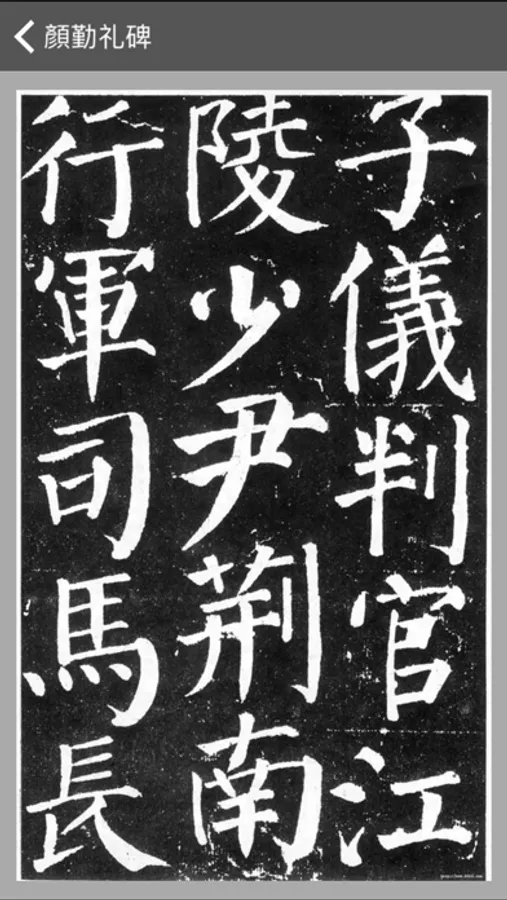 顏勤礼碑
子儀判官江
陵少尹荆南
行軍司馬長